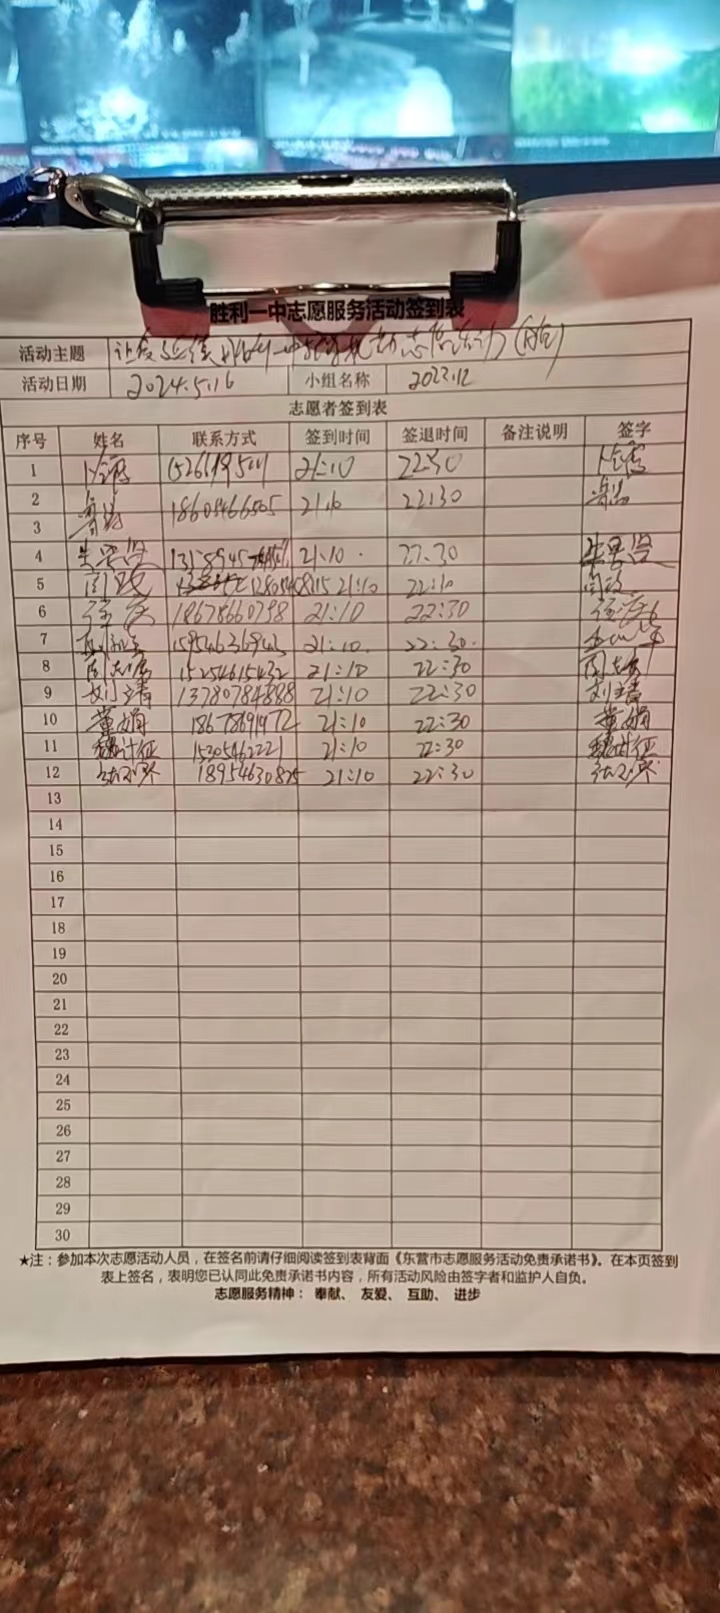 胜利一中志愿服务活动签到表
活动主题 让爱 志愿活动
活动日期 2024.5.16 小组名称 2023.12
志愿者签到表
序号 姓名 联系方式 签到时间 签退时间 备注说明 签字
1 21:10 22:30
2 18609466505 22:30
3
4 21:10 22:30
5 21:10
6 徐庆 18678660798 21:10 22:30 徐庆
7 15954636943 21:10 22:30
8 15254615432 21:10 22:30
9 刘靖 13780784888 21:10 22:30 刘靖
10 董娟 18678691972 21:10 22:30 董娟
11 魏计征 15305462221 21:10 22:30 魏计征
12 18954630825 21:10 22:30
13
14
15
16
17
18
19
20
21
22
23
24
25
26
27
28
29
30
★注：参加本次志愿活动人员，在签名前请仔细阅读签到表背面《东营市志愿服务活动免责承诺书》。在本页签到
表上签名，表明您已认同此免责承诺书内容，所有活动风险由签字者和监护人自负。
志愿服务精神： 奉献、 友爱、 互助、 进步